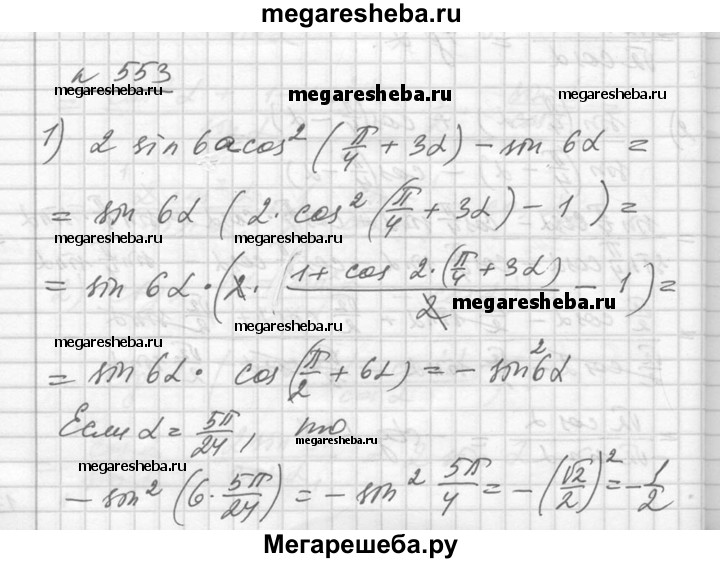 megaresheba.ru
№ 553
megaresheba.ru megaresheba.ru megaresheba.ru
1) 2 sin 6α cos² (π/4 + 3α) − sin 6α =
= sin 6α (2 · cos² (π/4 + 3α) − 1) =
megaresheba.ru megaresheba.ru
= sin 6α · (2 · (1 + cos 2 · (π/4 + 3α))/2 − 1) =
megaresheba.ru
megaresheba.ru
megaresheba.ru
= sin 6α · cos (π/2 + 6α) = − sin² 6α
megaresheba.ru
Если α = 5π/24, то
megaresheba.ru
megaresheba.ru megaresheba.ru
− sin² (6 · 5π/24) = − sin² 5π/4 = − (√2/2)² = − 1/2
megaresheba.ru
Мегарешеба.ру